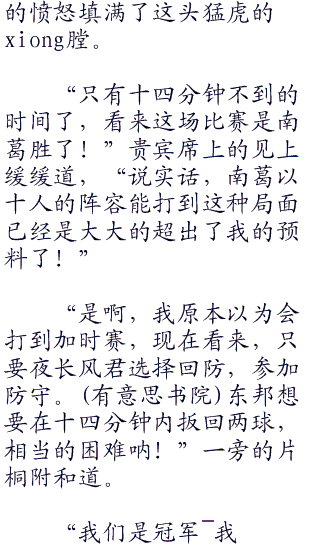 的愤怒填满了这头猛虎的
xiong膛。
“只有十四分钟不到的
时间了，看来这场比赛是南
葛胜了！”贵宾席上的见上
缓缓道，“说实话，南葛以
十人的阵容能打到这种局面
已经是大大的超出了我的预
料了！”
“是啊，我原本以为会
打到加时赛，现在看来，只
要夜长风君选择回防，参加
防守。(有意思书院)东邦想
要在十四分钟内扳回两球，
相当的困难呐！”一旁的片
桐附和道。
“我们是冠军¯我